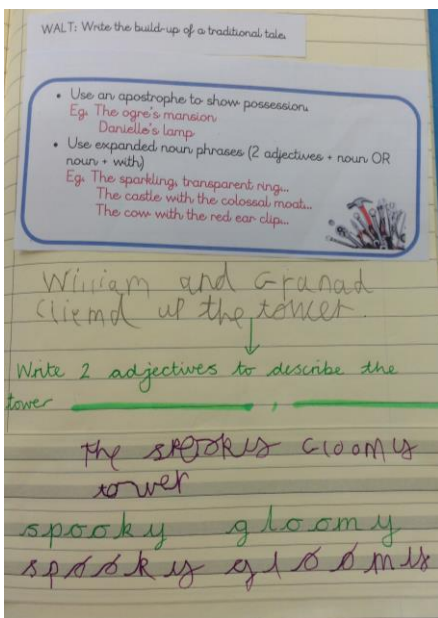 WALT: Write the build-up of a traditional tale.
• Use an apostrophe to show possession.
Eg. The ogre's mansion
Danielle's lamp
• Use expanded noun phrases (2 adjectives + noun OR
noun + with)
Eg. The sparkling, transparent ring...
The castle with the colossal moat...
The cow with the red ear clip...
William and Granad
Cliemd up the tower.
Write 2 adjectives to describe the
tower ,
The spooky Gloomy
tower
spooky gloomy
spooky gloomy